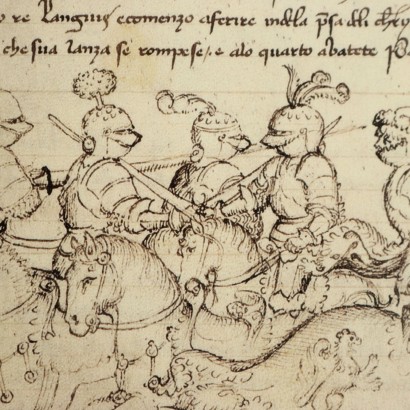 o re Languis ecomenzo aferire indela psa deli
che sua lanza se rompese / e alo quarto abatete